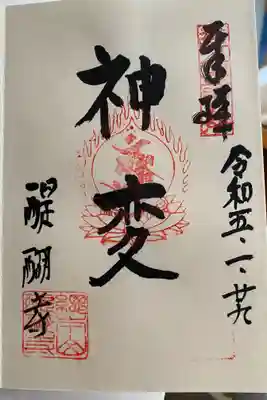 奉拝
令和五.一.廿九
神変
醍醐寺